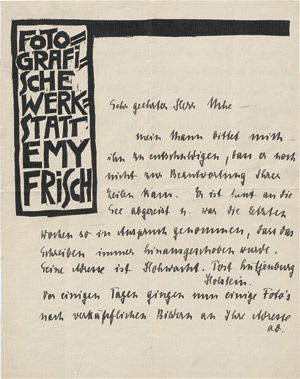 FOTO=
GRAFI=
SCHE
WERK=
STATT.
EMY
FRISCH
Sehr geehrter Herr
mein Mann bittet mich
ihn zu entschuldigen, dass er noch
nicht zur Beantwortung Ihrer
Zeilen kam. Er ist heut an die
See abgereist u. war die letzten
Wochen so in Anspruch genommen, dass das
Schreiben immer hinausgeschoben wurde.
Seine Adresse ist Hohwacht. Post Lütjenburg
Holstein.
Vor einigen Tagen gingen nun einige Foto's
nach verkäuflichen Bildern an Ihre Adresse
ab.